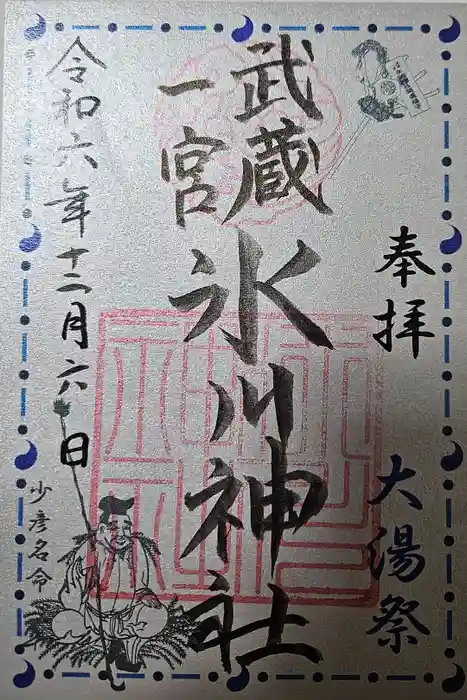 奉拝 大湯祭
武蔵
一宮
氷川神社
令和六年十二月六日
少彦名命